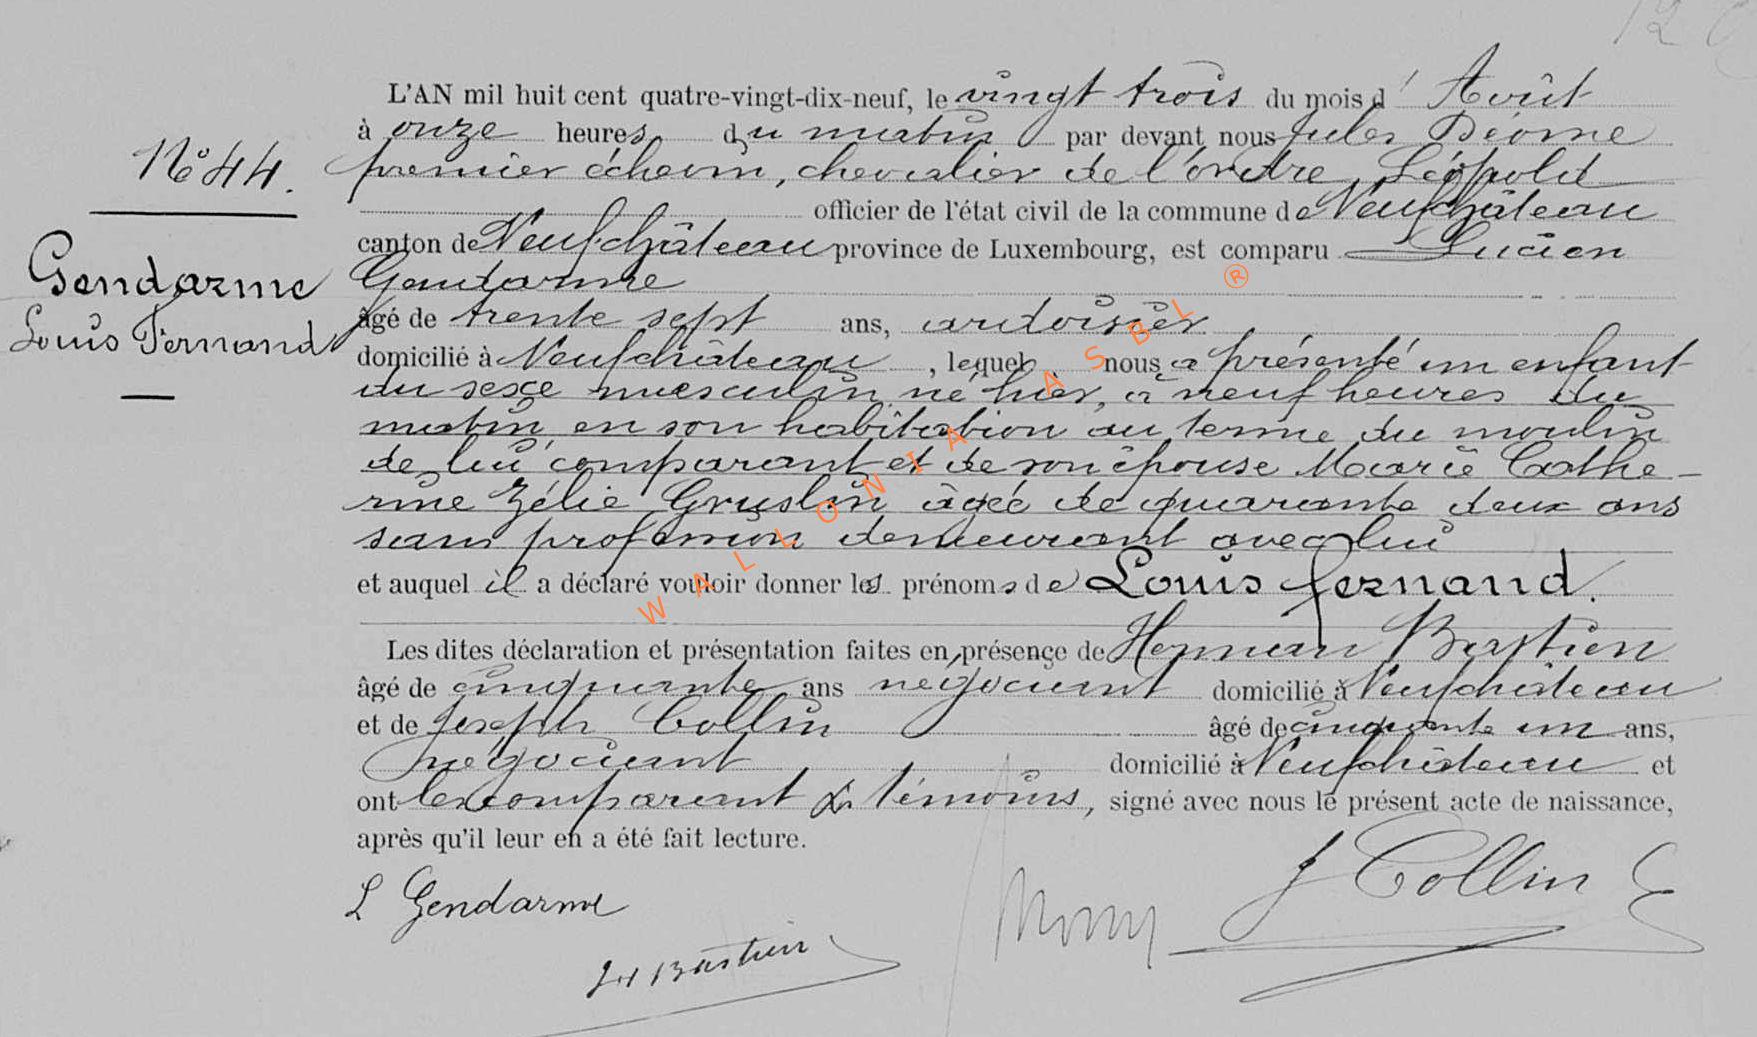 N° 44.
Gendarme
Louis Fernand
L'AN mil huit cent quatre-vingt-dix-neuf, le vingt trois du mois d'Août
à onze heures du matin par devant nous Jules
premier échevin, chevalier de l'ordre Léopold
officier de l'état civil de la commune de Neufchâteau
canton de Neufchâteau province de Luxembourg, est comparu Lucien
Gendarme
âgé de trente sept ans, ardoisier
domicilié à Neufchâteau, lequel nous a présenté un enfant
du sexe masculin né hier, à neuf heures du
matin en son habitation au terme du moulin
de lui comparant et de son épouse Marie Cathe-
rine Zélie Gruslin âgée de quarante deux ans
sans profession demeurant avec lui
et auquel il a déclaré vouloir donner les prénoms de Louis fernand.
Les dites déclaration et présentation faites en présence de Herman Bastien
âgé de cinquante ans négociant domicilié à Neufchâteau
et de Joseph Collin âgé de cinquante un ans,
négociant domicilié à Neufchâteau et
ont les comparant & témoins, signé avec nous le présent acte de naissance,
après qu'il leur en a été fait lecture.
L Gendarme
Bastien
J Collin
WALLONIA ASBL ®